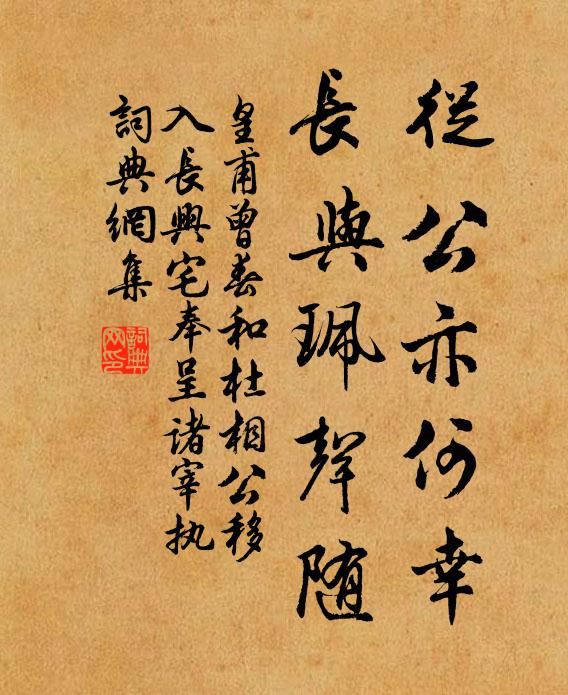 從公亦何幸
長與珮聲随
皇甫曾奉和杜相公移
入長興宅奉呈諸宰执
詞典網集
詞典网印